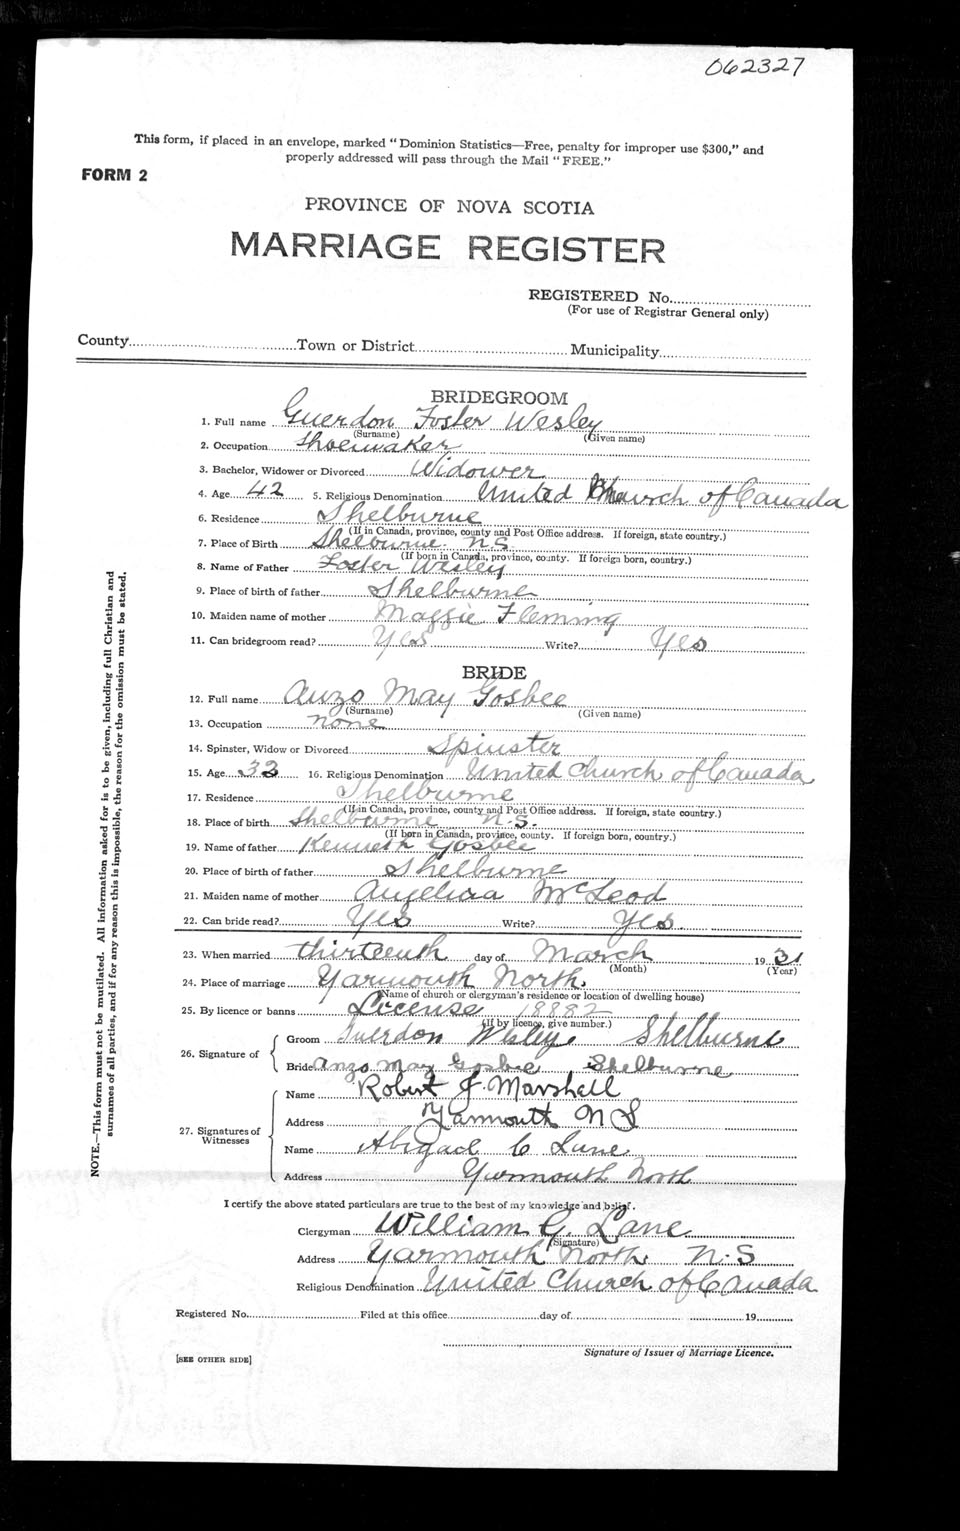 062327
This form, if placed in an envelope, marked "Dominion Statistics—Free, penalty for improper use $300," and
properly addressed will pass through the Mail "FREE."
FORM 2
PROVINCE OF NOVA SCOTIA
MARRIAGE REGISTER
REGISTERED No.
(For use of Registrar General only)
County Town or District Municipality
BRIDEGROOM
1. Full name Guerdon Foster Wesley
(Surname) (Given name)
2. Occupation Shoemaker
3. Bachelor, Widower or Divorced Widower
4. Age 42 5. Religious Denomination United Church of Canada
6. Residence Shelburne
(If in Canada, province, county and Post Office address. If foreign, state country.)
7. Place of Birth Shelburne N.S.
(If born in Canada, province, county. If foreign born, country.)
8. Name of Father Foster Wesley
9. Place of birth of father Shelburne
10. Maiden name of mother Maggie Fleming
11. Can bridegroom read? Yes Write? Yes
BRIDE
12. Full name Anzo May Gosbee
(Surname) (Given name)
13. Occupation none
14. Spinster, Widow or Divorced Spinster
15. Age 33 16. Religious Denomination United Church of Canada
17. Residence Shelburne
(If in Canada, province, county and Post Office address. If foreign, state country.)
18. Place of birth Shelburne N.S.
(If born in Canada, province, county. If foreign born, country.)
19. Name of father Kenneth Gosbee
20. Place of birth of father Shelburne
21. Maiden name of mother McLeod
22. Can bride read? Yes Write? Yes.
23. When married thirteenth day of March 19 31
(Month) (Year)
24. Place of marriage Yarmouth North.
(Name of church or clergyman's residence or location of dwelling house)
25. By licence or banns License 18882
(If by licence, give number.)
26. Signature of
Groom Guerdon Wesley Shelburne
Bride Anzo May Gosbee Shelburne
27. Signatures of Witnesses
Name Robert J. Marshall
Address Yarmouth N S
Name Abigail C Lane
Address Yarmouth North
I certify the above stated particulars are true to the best of my knowledge and belief.
Clergyman William G. Lane
(Signature)
Address Yarmouth North N.S
Religious Denomination United Church of Canada
Registered No. Filed at this office day of 19
Signature of Issuer of Marriage Licence.
[SEE OTHER SIDE]
NOTE.—This form must not be mutilated. All information asked for is to be given, including full Christian and
surnames of all parties, and if for any reason this is impossible, the reason for the omission must be stated.